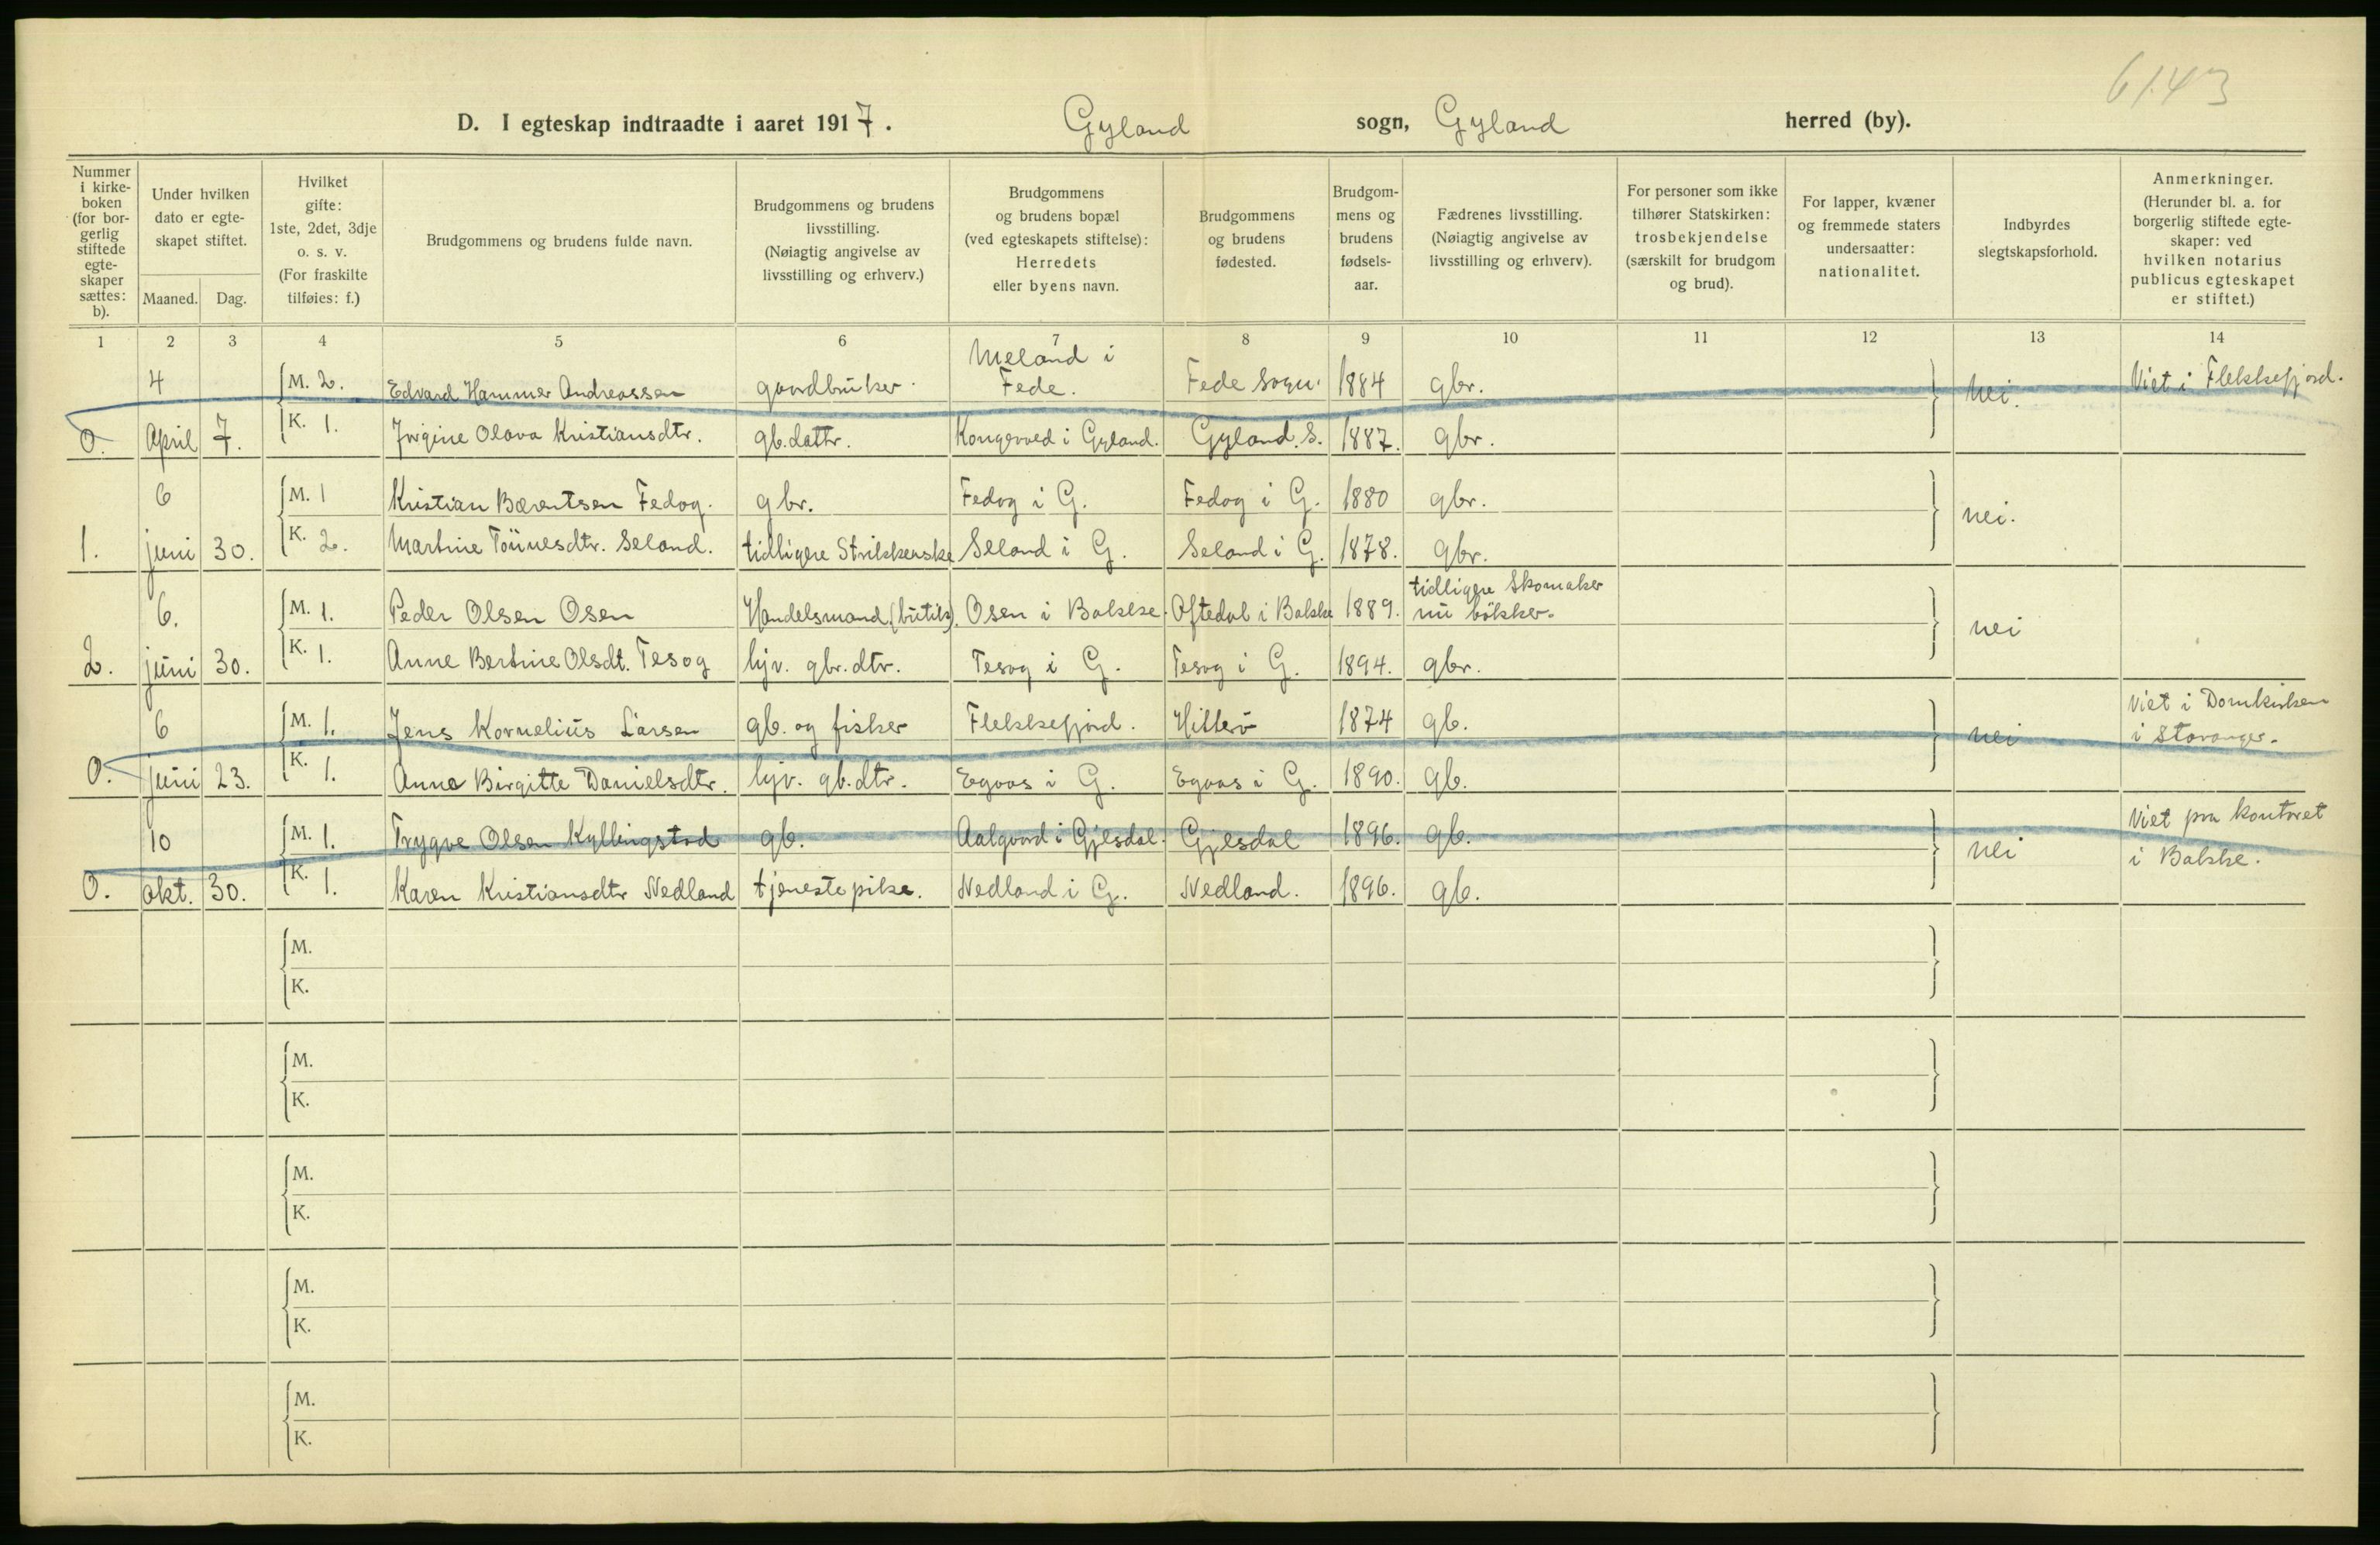 6143
D. I egteskap indtraadte i aaret 1917. Gyland sogn, Gyland herred (by).
Nummer i kirkeboken (for borgerlig stiftede egteskaper sættes: b).
Under hvilken dato er egteskapet stiftet.
Maaned. Dag.
Hvilket gifte: 1ste, 2det, 3dje o. s. v. (For fraskilte tilføies: f.)
Brudgommens og brudens fulde navn.
Brudgommens og brudens livsstilling. (Nøiagtig angivelse av livsstilling og erhverv.)
Brudgommens og brudens bopæl (ved egteskapets stiftelse): Herredets eller byens navn.
Brudgommens og brudens fødested.
Brudgommens og brudens fødselsaar.
Fædrenes livsstilling. (Nøiagtig angivelse av livsstilling og erhverv).
For personer som ikke tilhører Statskirken: trosbekjendelse (særskilt for brudgom og brud).
For lapper, kvæner og fremmede staters undersaatter: nationalitet.
Indbyrdes slegtskapsforhold.
Anmerkninger. (Herunder bl. a. for borgerlig stiftede egteskaper: ved hvilken notarius publicus egteskapet er stiftet.)
1 2 3 4 5 6 7 8 9 10 11 12 13 14
4 M. 2. Edvard Hammer Andreassen gaardbruker. Meland i Fede. Fede sogn. 1884 gbr. nei. Viet i Flekkefjord.
0. April 7. K. 1. Jorgine Olava Kristiansdtr. gb.dattr. Kongevold i Gyland. Gyland. S. 1887. gbr.
6 M. 1 Kristian Bærentsen Fedog. gbr. Fedog i G. Fedog i G. 1880 gbr. nei.
1. juni 30. K. 2. Martine Tönnesdtr. Seland. tidligere Strikkerske Seland i G. Seland i G. 1878. gbr.
6. M. 1. Peder Olsen Osen Handelsmand (butik). Osen i Bakke. Oftedal i Bakke 1889. tidligere Skomaker nu bökker. nei
2. juni 30. K. 1. Anne Bertine Olsdt. Tesog hjv. gbr.dtr. Tesog i G. Tesog i G. 1894. gbr.
6 M. 1. Jens Kornelius Larsen gb. og fisker Flekkefjord. Hitterö 1874 gb. nei Viet i Domkirken i Stavanger.
0. juni 23. K. 1. Anna Birgitte Danielsdtr. hjv. gb.dtr. Egaas i G. Egaas i G. 1890. gb.
10 M. 1. Trygve Olsen Kyllingstad gb. Aalgaard i Gjesdal. Gjesdal 1896. gb. nei Viet paa kontoret i Bakke.
0. okt. 30. K. 1. Karen Kristiansdtr Nedland tjenestepike. Nedland i G. Nedland. 1896. gb.
M.
K.
M.
K.
M.
K.
M.
K.
M.
K.